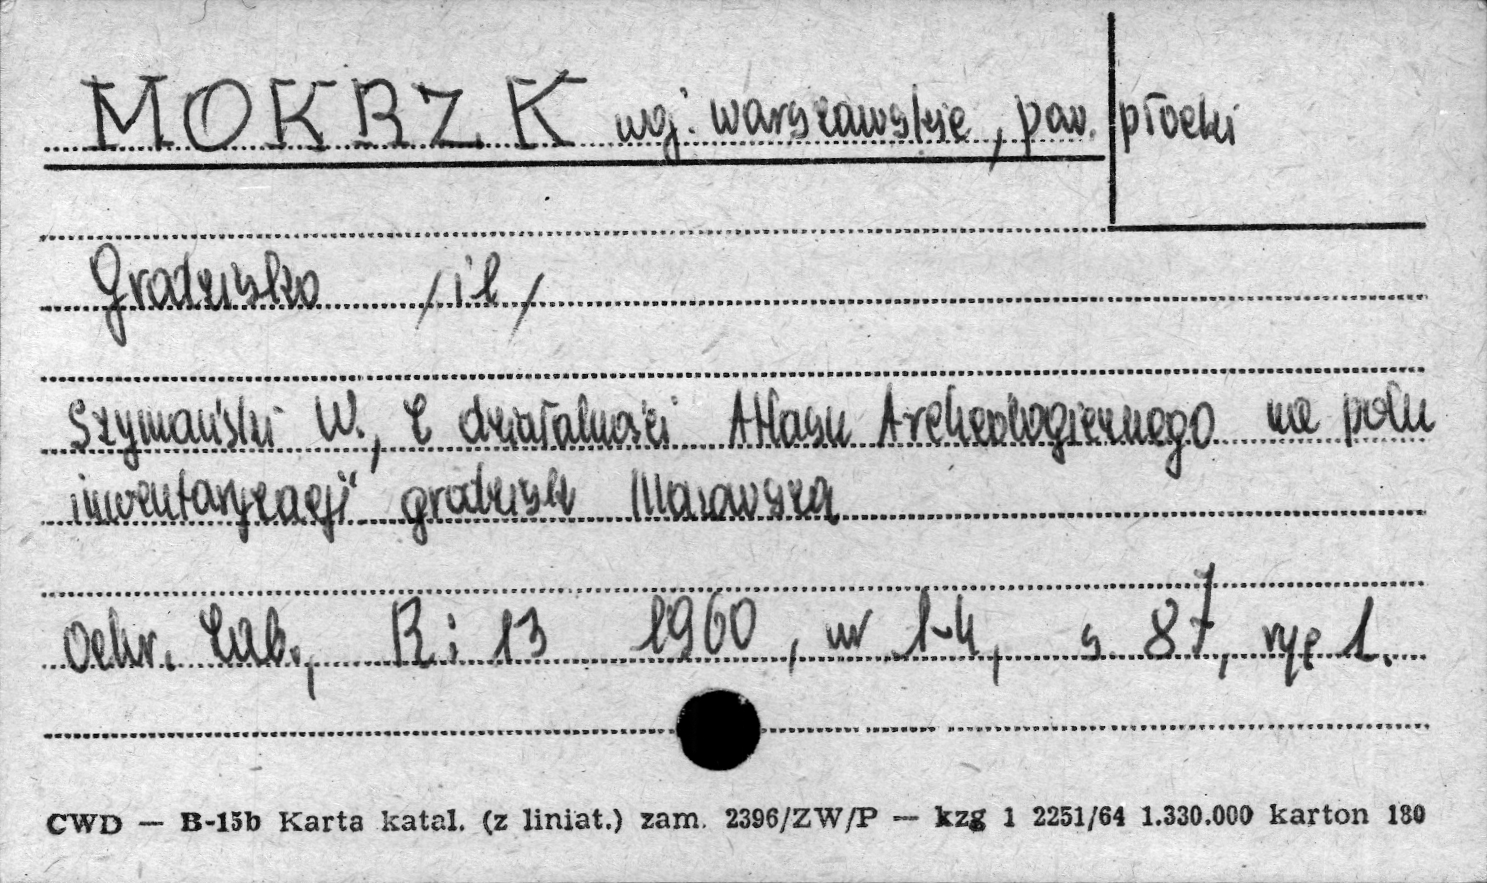 MOKRZK woj. warszawskie, pow. płocki
Grodzisko /il/
Szymański W., Z działalności Atlasu Archeologicznego na polu
inwentaryzacji grodzisk Mazowsza
Ochr. Zab., R: 13 1960, nr 1-4, s 87, ryc 1.
CWD — B-15b Karta katal. (z liniat.) zam. 2396/ZW/P — kzg 1 2251/64 1.330.000 karton 180